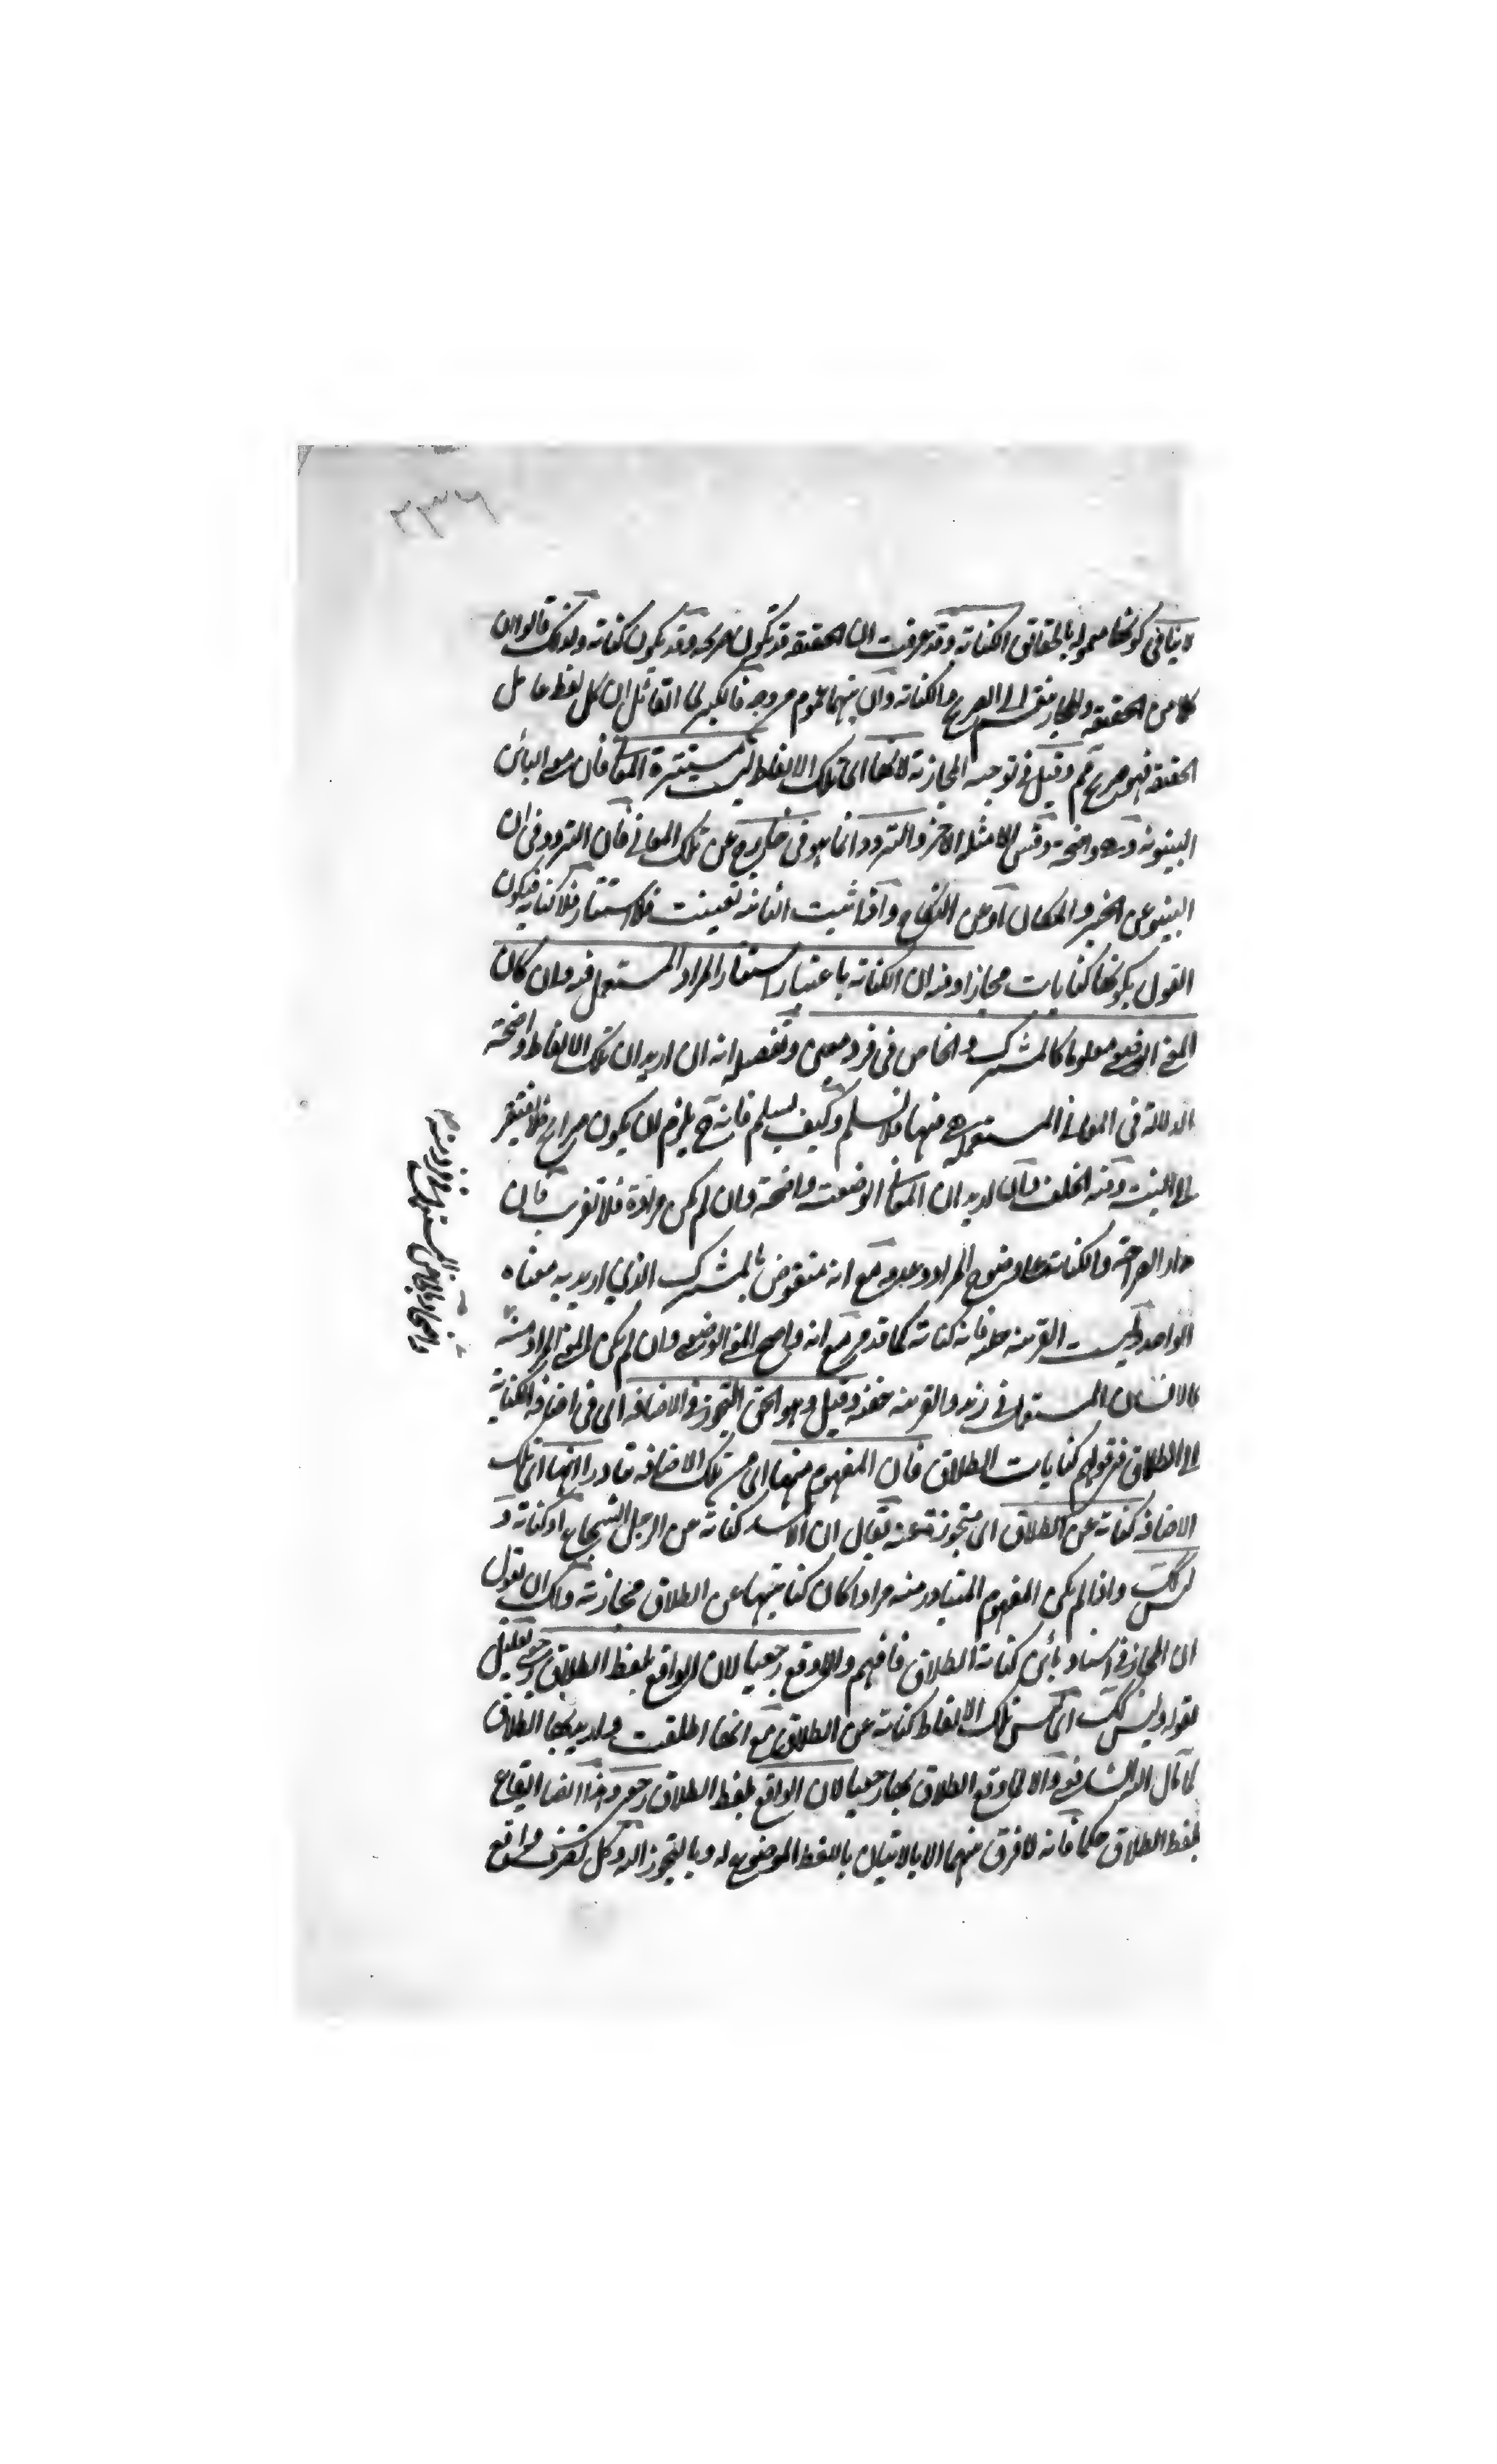 ٢٣٦
لا ينافي كونها معمولة بالحقائق الكناية وقد عرفت ان الحقيقة قد تكون صريحة وقد يكون كناية ولذلك قالوا ان
كلا من الحقيقة والمجاز منقسم الى الصريح والكناية وان بينهما عموم من وجه القائل ان كل لفظ عامل
الحقيقة فهو صريح وقيل في توجيه المجازية لانها اي تلك الالفاظ ليست مستترة المعنى فان معنى البائن
البينونة وهو واضحة وقس الامثلة الاخر والتردد انما هو في خارج عن تلك المعاني فان التردد في ان
البينونة عن الخير والمكان او عن النكاح واذا ثبت انها منه تعينت فلا استتار فلا كناية فيكون
القول بكونها كنايات مجازا وفيه ان الكناية باعتبار استتار المراد المستعمل فيه وان كان
المعنى الوضعي معلوما كالمشترك والخاص في فرد معين وتفصيله انه ان اريد ان تلك الالفاظ واضحة
الدلالة في المعاني المستعملة هي فيها فلا نسلم وكيف يسلم فانه ح يلزم ان يكون صرائح فلا يفتقر
الى النية وفيه الخلف وان اريد ان المعاني الوضعية واضحة وان لم يكن مرادة فلا تقريب فان
مدار الصراحة والكناية على وضوح المراد وعدمه مع انه منقوض بالمشترك الذي اريد به معناه
الواحد وليست القرينة جلية فانه كناية كما قد مر مع انه واضح المعنى الوضعي وان لم يكن المعنى المراد منه
كالانسان المستعمل في زيد والقرينة خفية وقيل وهو الحق التجوز في الاضافة اي في اضافة الكناية
الى الطلاق في قولهم كنايات الطلاق فان المفهوم منها اي من تلك الاضافة تبادرا انها اي تلك
الاضافة كناية عن الطلاق اي متجوزة عنه يقال ان الاسد كناية عن الرجل الشجاع او كناية و
ليس كك واذا لم يكن المفهوم المتبادر منه مرادا كان كنايتها عن الطلاق مجازية ولك ان تقول
ان المجاز في اسناد بائن كناية الطلاق فافهم والا وقع رجعيا لان الواقع بلفظ الطلاق رجعي تعليل
لقوله وليس كك اي ليس تلك الالفاظ كناية عن الطلاق مع انها اطلقت واريد بها الطلاق
كما قال الشافعي والا لما وقع الطلاق بها رجعيا لان الواقع بلفظ الطلاق رجعي وهذا ايضا ايقاع
بلفظ الطلاق حكما فانه لا فرق بينهما الا بالاتيان باللفظ الموضوع له وبالتجوز اليه وكل تصرف واقع